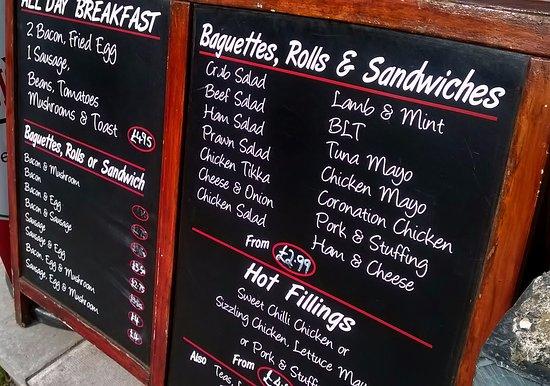 ALL DAY BREAKFAST
2 Bacon, Fried Egg
1 Sausage,
Beans, Tomatoes
Mushrooms & Toast £4.95
Baguettes, Rolls or Sandwich
Bacon & Mushroom
Bacon
Bacon & Egg
Bacon & Sausage
Sausage
Sausage & Egg
Bacon, Egg & Mushroom
Sausage, Egg & Mushroom
Baguettes, Rolls & Sandwiches
Crab Salad
Beef Salad
Ham Salad
Prawn Salad
Chicken Tikka
Cheese & Onion
Chicken Salad
Lamb & Mint
BLT
Tuna Mayo
Chicken Mayo
Coronation Chicken
Pork & Stuffing
Ham & Cheese
From £2.99
Hot Fillings
Sweet Chilli Chicken or
Sizzling Chicken, Lettuce Mayo
or Pork & Stuffing
From
Also
Teas,